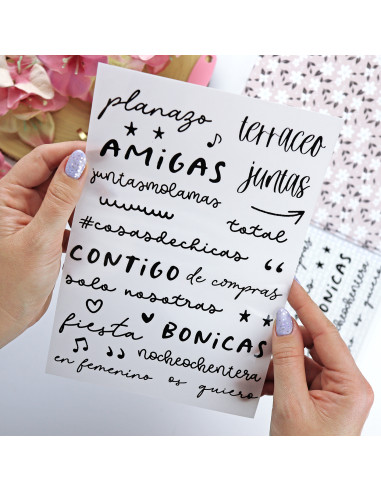 planazo
terraceo
AMIGAS
juntas
juntasmolamas
total
#cosasdechicas
CONTIGO de compras
solo nosotras
fiesta BONICAS
nocheochentera
en femenino os quiero
BONICAS